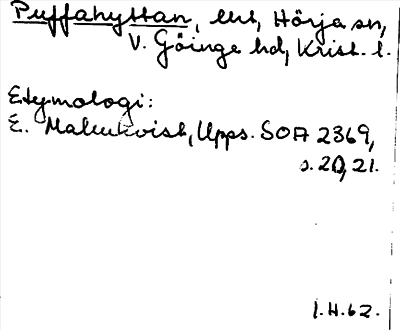 Puffahyttan, ehs, Hörja sn,
V. Göinge hd, Krist. l.
Etymologi:
E. Malmkvist, Upps. SOA 2369,
s. 20, 21.
I.H. 62.